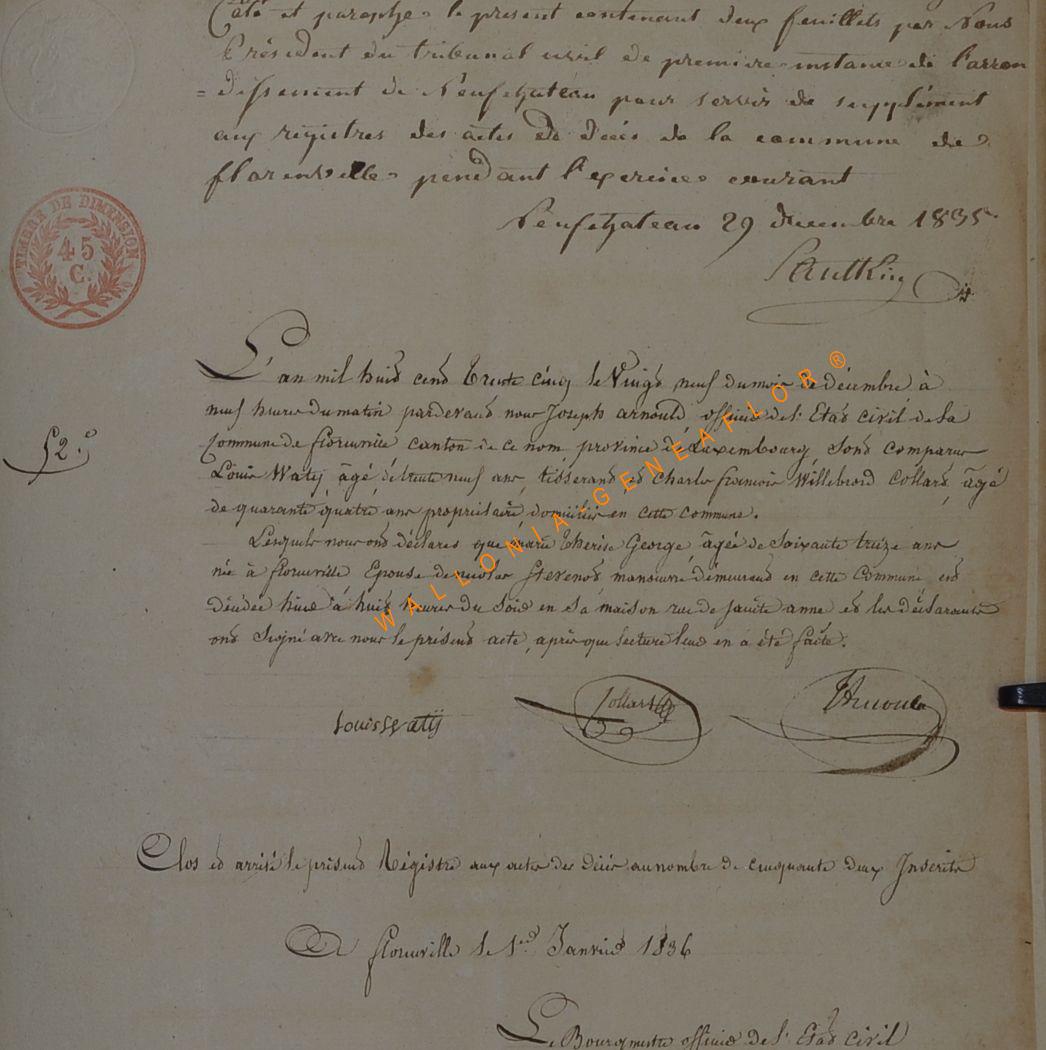 Coté et paraphé le present contenant deux feuillets par Nous
Président du tribunal civil de premiere instance de l'arron
=dissement de Neufchateau pour servir de supplément
aux registres des actes de décès de la commune de
florenville pendant l'exercice courant
Neufchateau 29 decembre 1835
TIMBRE DE DIMENSION
45
C.
L'an mil huit cent trente cinq le Vingt neuf du mois de décembre à
neuf heures du matin pardevant nous Joseph arnould officier de l'Etat civil de la
52.e
Commune de florenville canton de ce nom, province de Luxembourg, sont comparus
Louis Watij âgé de trente neuf ans, tisserand et Charles francois Willebrord Collard, âgé
de quarante quatre ans propriétaire, domiciliés en cette commune.
Lesquels nous ont déclarés que marie therèse George âgée de soixante treize ans
née à florenville Epouse de nicolas Stevenot manœuvre demeurant en cette Commune est
décédée hier à huit heures du Soir en sa maison rue de sainte anne et les déclarants
ont signé avec nous le présent acte, après que lecture leur en a été faite.
Louis Watij
Collard
JArnould
Clos et arrêté le présent Régistre aux actes des décès au nombre de cinquante deux Inscrits
A florenville le 1er Janvier 1836
Le Bourgmestre officier de l'Etat civil
WALLONIA-GENEAFLOR ®